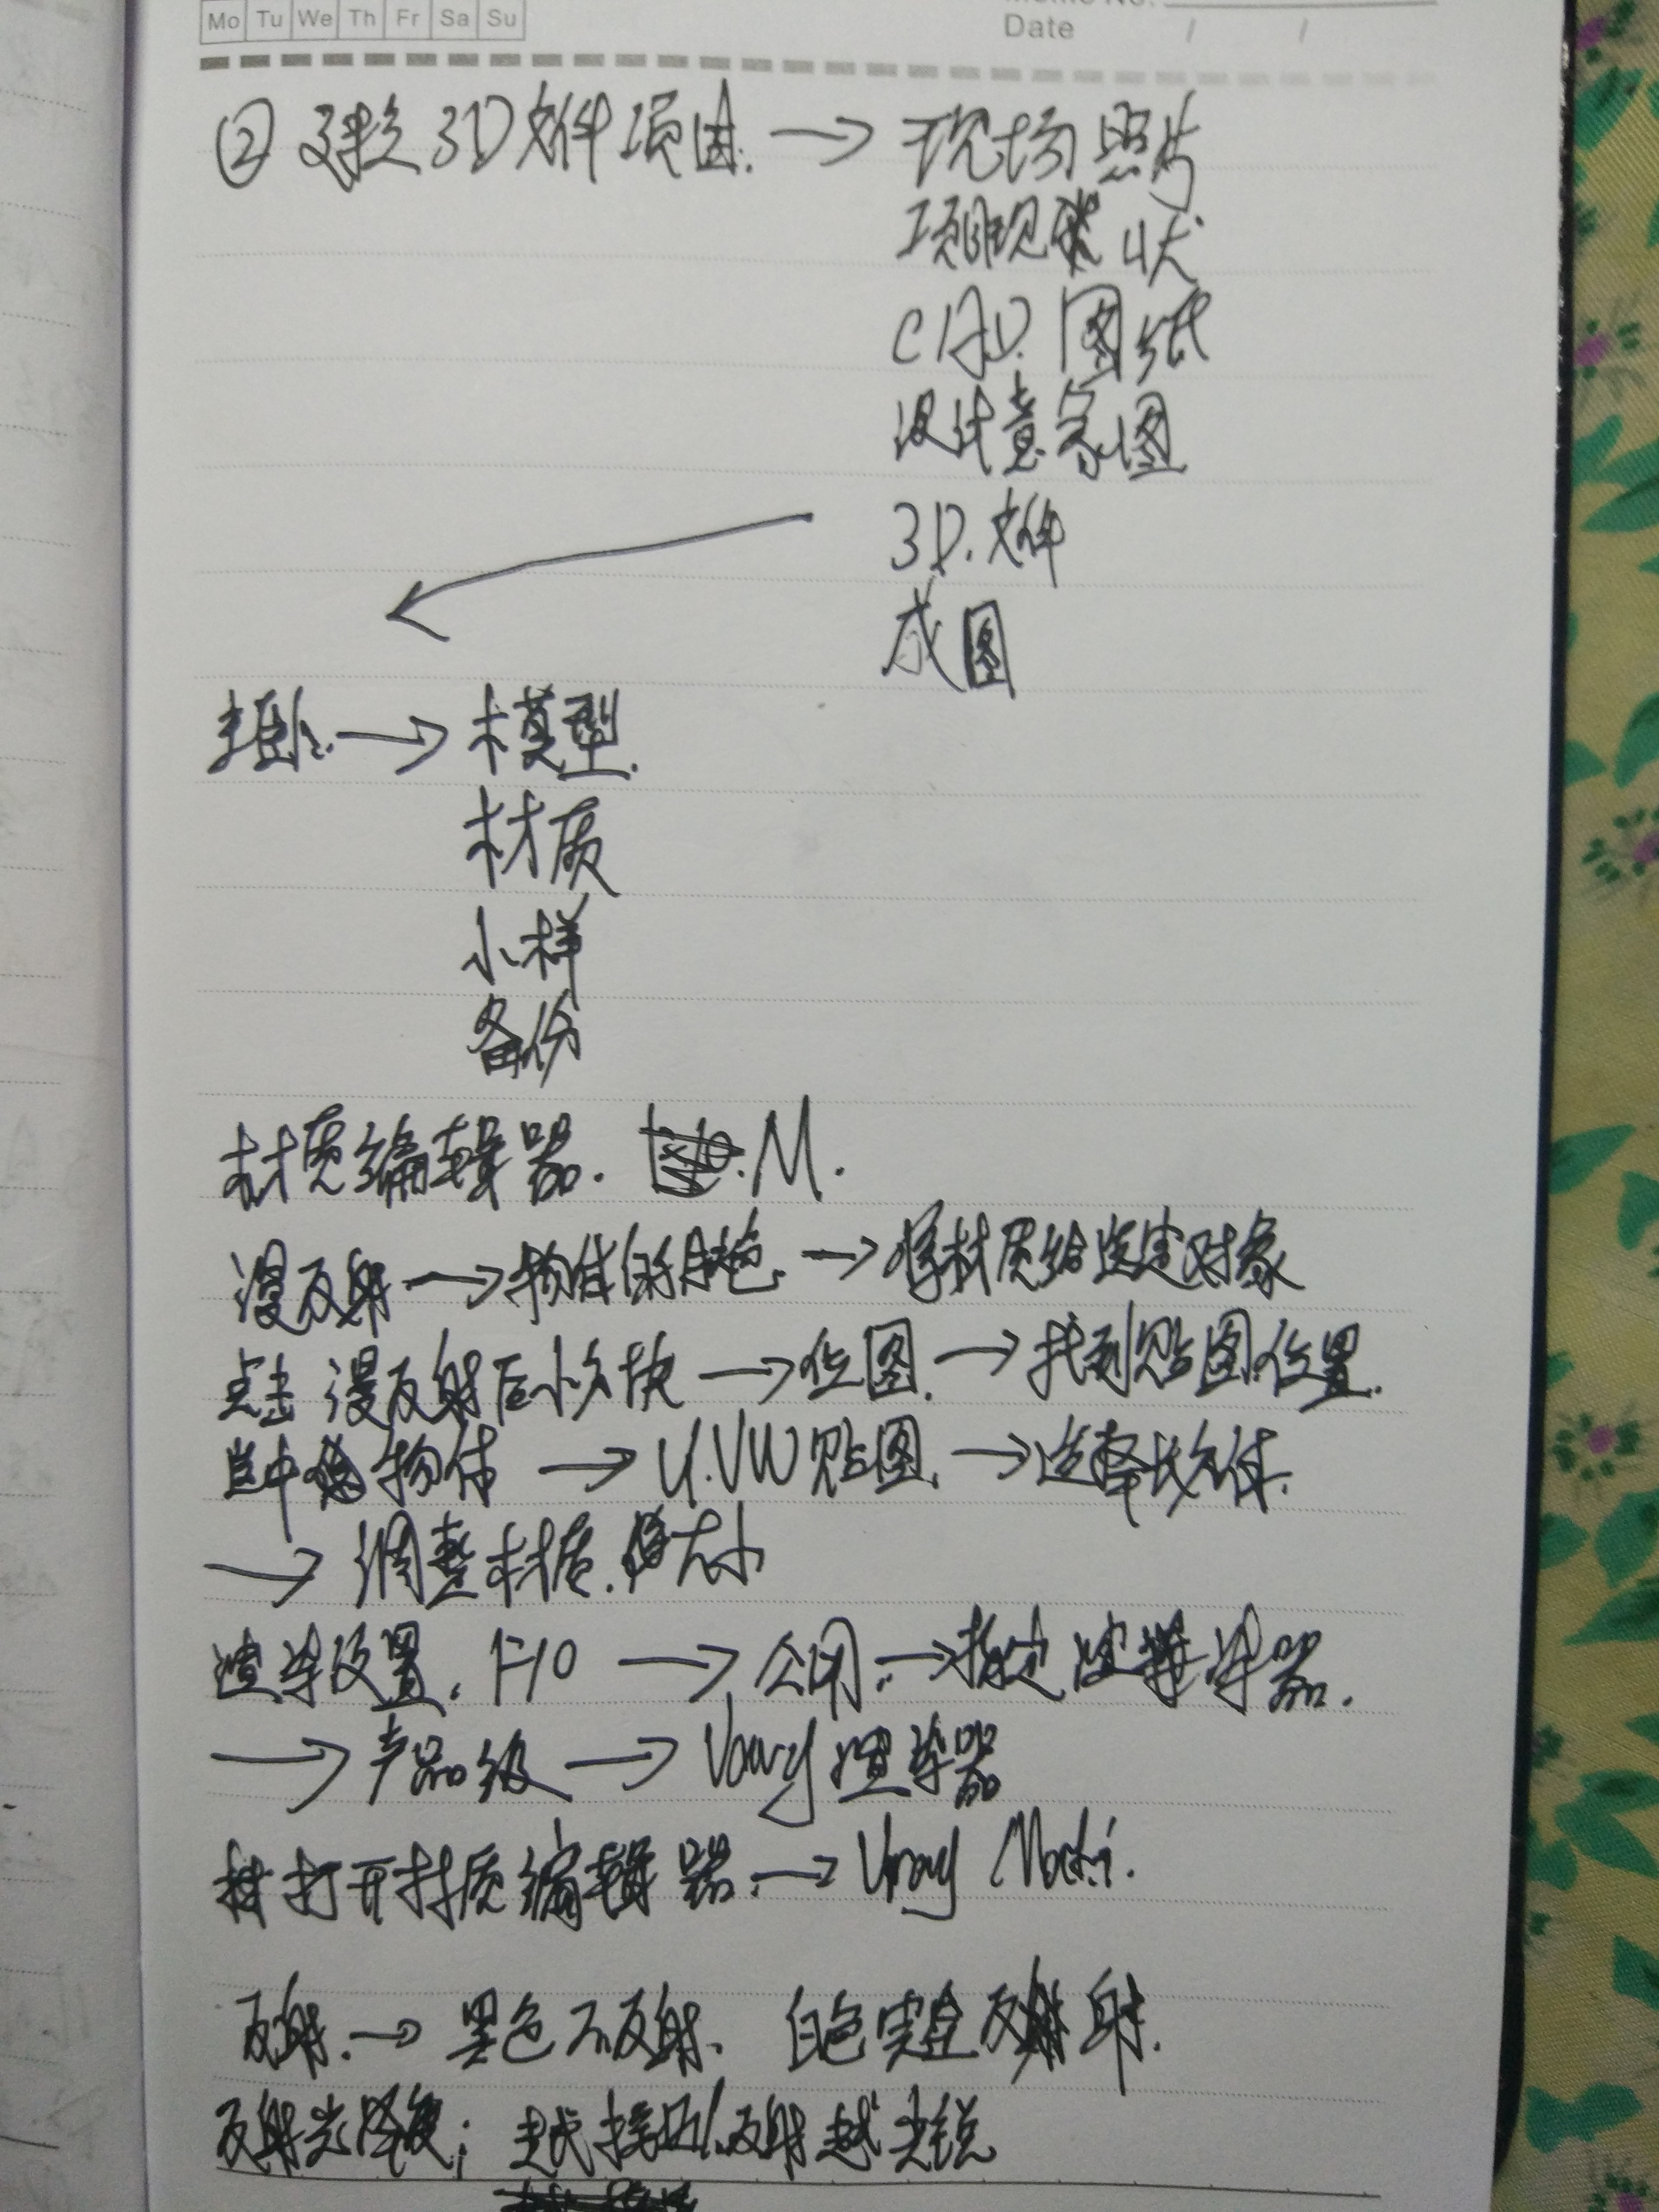 Mo Tu We Th Fr Sa Su
Memo No.
Date / /
② 建立3D文件项目. → 现场照片
项目现状
CAD.图纸
设计意象图
3D.文件
成图
→ 模型.
材质
小样
备份
材质编辑器. M.
漫反射 → 物体的颜色. → 将材质给选定对象
点击漫反射后小方块 → 位图. → 找到贴图位置.
选中物体 → U.VW贴图. → 选择长方体.
→ 调整材质.大小
渲染设置. F10 → 公用. → 指定渲染器.
→ 产品级 → Vray渲染器
打开材质编辑器. → Vray Mati.
反射. → 黑色不反射、白色完全反射.
反射光泽度; 越接近1.反射越尖锐